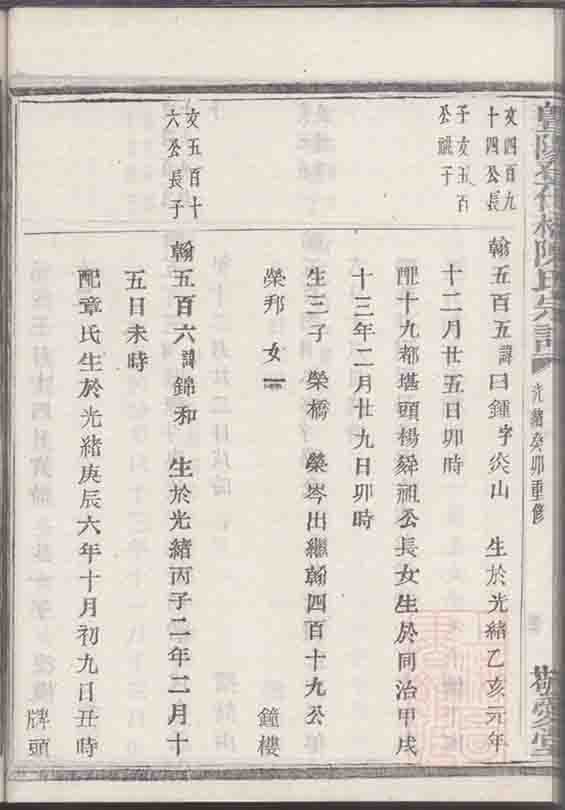 陳氏宗譜
光緒癸卯重修
敬愛堂
文四百九
十四公長
子文五百
公祧子
翰五百五諱曰鍾字炎山 生於光緒乙亥元年
十二月廿五日卯時
配十九都堪頭楊舜祖公長女生於同治甲戌
十三年二月廿九日卯時
生三子 榮橋 榮岑出繼翰四百十九公
榮邦 女一 鐘樓
文五百十
六公長子
翰五百六諱錦和 生於光緒丙子二年二月十
五日未時
配章氏生於光緒庚辰六年十月初九日丑時
牌頭